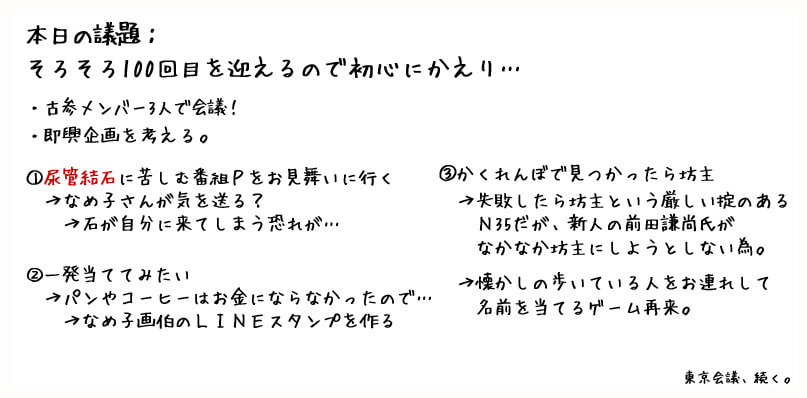 本日の議題；
そろそろ100回目を迎えるので初心にかえり…
・古参メンバー3人で会議！
・即興企画を考える。
①尿管結石に苦しむ番組Ｐをお見舞いに行く
→なめ子さんが気を送る？
→石が自分に来てしまう恐れが…
②一発当ててみたい
→パンやコーヒーはお金にならなかったので…
→なめ子画伯のＬＩＮＥスタンプを作る
③かくれんぼで見つかったら坊主
→失敗したら坊主という厳しい掟のある
Ｎ35だが、新人の前田謙尚氏が
なかなか坊主にしようとしない為。
→懐かしの歩いている人をお連れして
名前を当てるゲーム再来。
東京会議、続く。